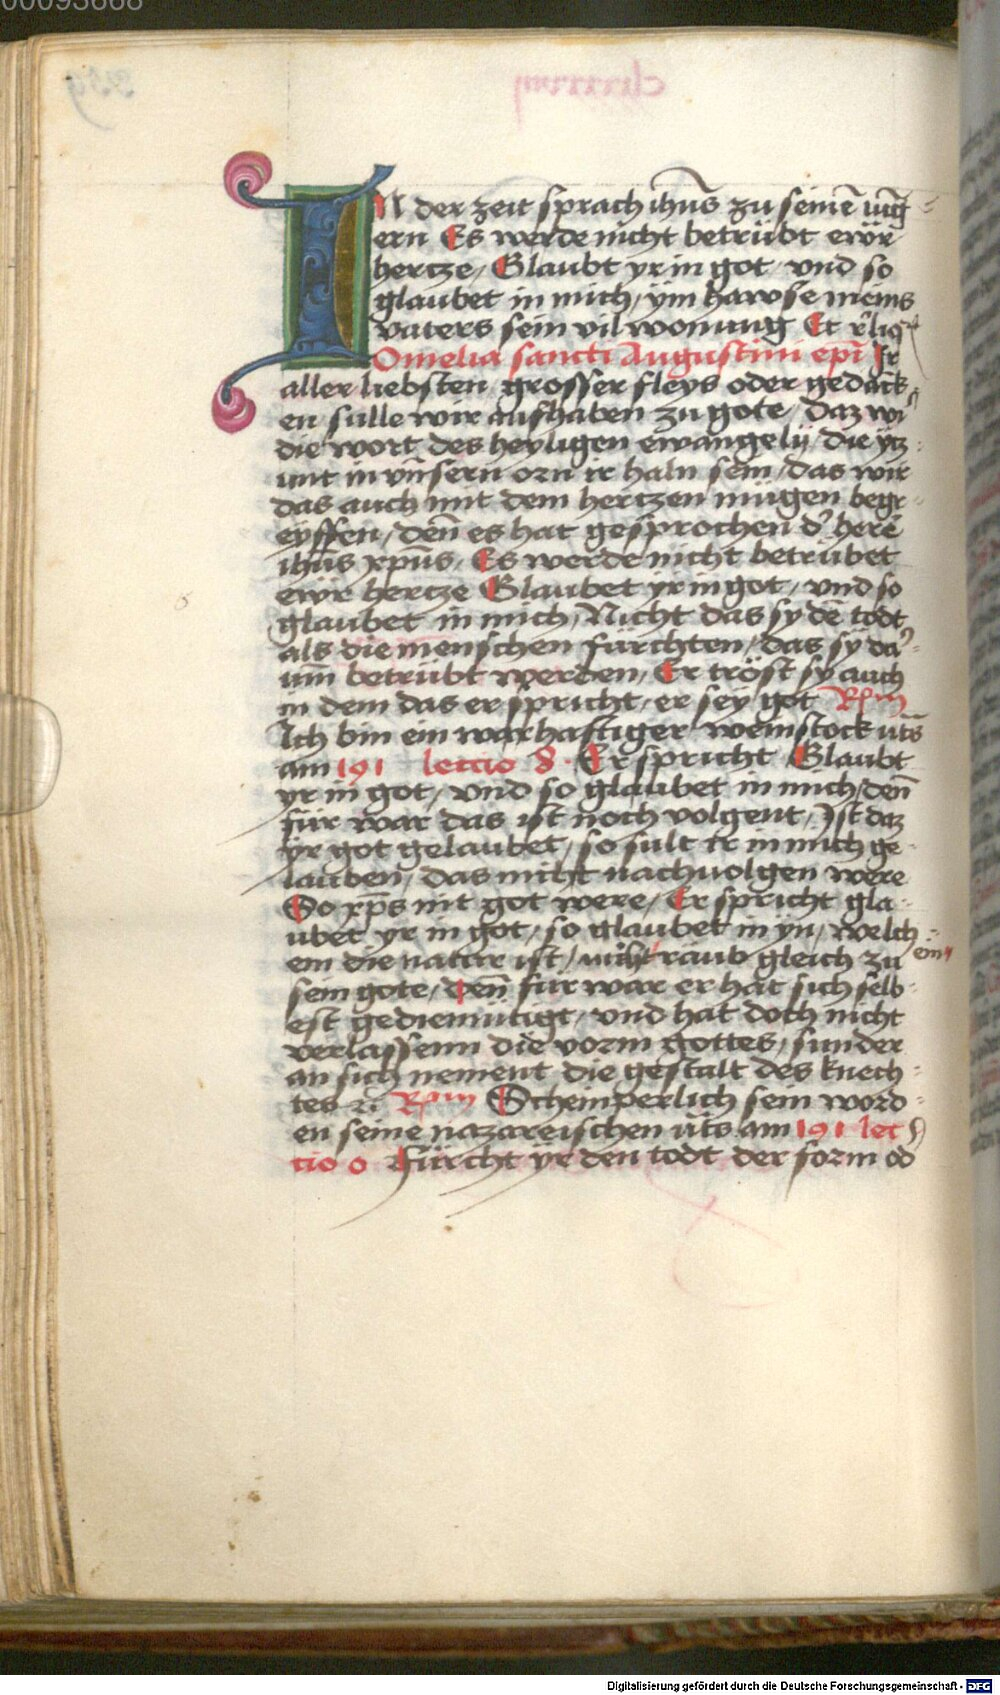 IN der zeit sprach ihūs zu seinē iūg
ern Es werde nicht betrübt ewͦr
hertze, Glaubt yr in got, vnd so
glaubet in mich, ÿm hawse meins
vaters sein vil wonung Et r̄liq̄
Omelia sancti Augustini ep̄i Ir
aller liebsten grosser fleys oder gedāck
en sulle wir aufhaben zu gote, daz wi
die wort des heyligen ewangelij, die ytz
unt in vn̄sern orn er haln sein, das wir
das auch mit dem hertzen mügen begr
eyffen, den̄ es hat gesprochen d' here
ihūs xpūs, Es werde nicht betrübet
ewr hertze Glaubet yr in got, vnd so
glaubet in mich, Nicht das sy dē todt
als die menschen fürchten, das sy da'
um̄ betrübt werden, Er tröst sy auch
in dem das er spricht, er sey got Rm
Ich bin ein warhaftiger weinstock ut̄s
am 191 lectio 8. Er spricht Glaubt
yr in got, vnd so glaubet in mich, den̄
für war das ist noch volgent, Ist daz
yr got gelaubet, so sult ir in mich ge
lauben, das nicht nachuolgen were
So xp̄s nit got were, Er spricht gla
ubet yr in got, so glaubet in yn, welch
em die natur ist, nicht raub gleich zu ein
sem gote, den̄ für war er hat sich selb
est gediemütigt, vnd hat doch nicht
verlassenn die vorm gottes, sunder
an sich nement die gestalt des knech
tes ⁊c̄ Rm Schemperlich sein word
en seine nazareischen ut̄s am 191 lec
tio 9 Fürcht yr den todt der form od
Digitalisierung gefördert durch die Deutsche Forschungsgemeinschaft - DFG